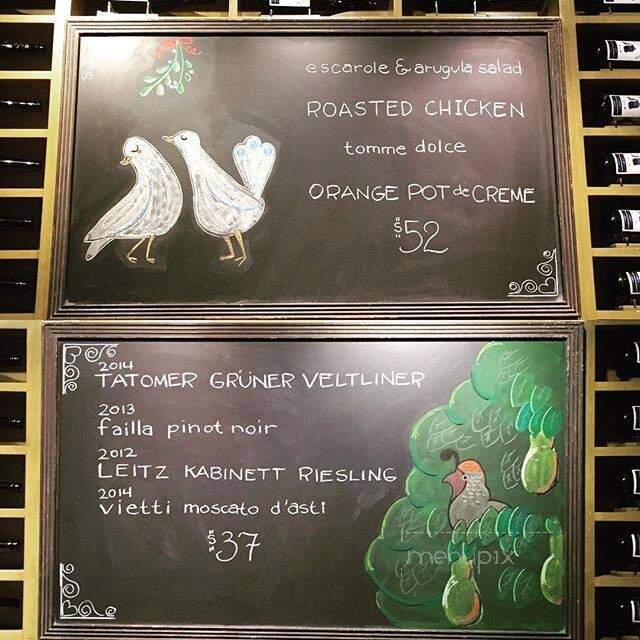 escarole & arugula salad
ROASTED CHICKEN
tomme dolce
ORANGE POT de CREME
$52
2014
TATOMER GRÜNER VELTLINER
2013
failla pinot noir
2012
LEITZ KABINETT RIESLING
2014
vietti moscato d'asti
$37
menupix